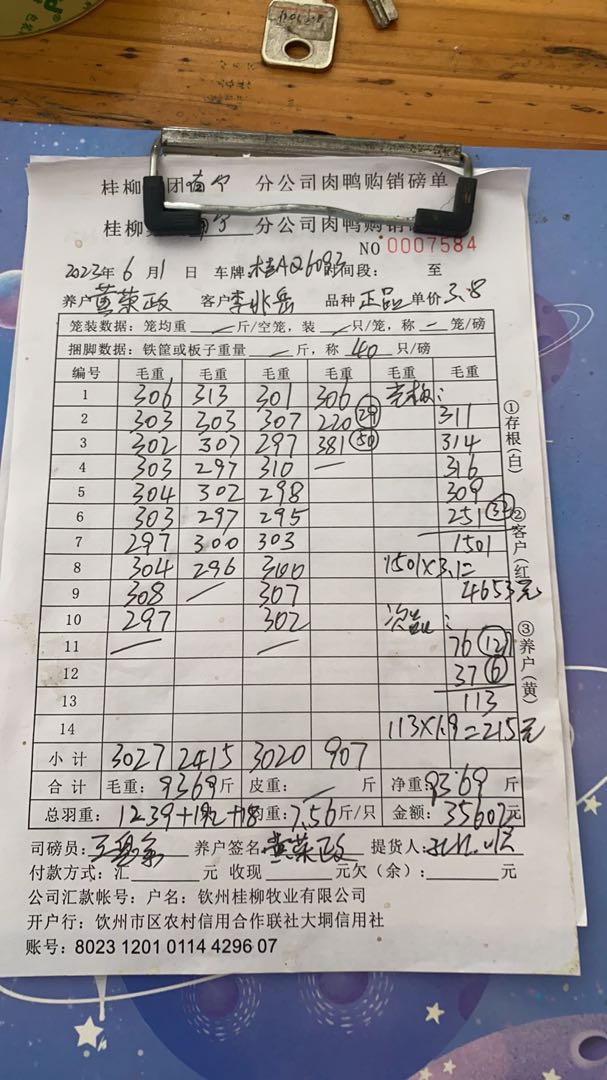 桂柳 团南宁 分公司肉鸭购销磅单
桂柳 南宁 分公司肉鸭购销
NO 0007584
2023年 6月1日 车牌 桂AQ6092 时间段: 至
养户 黄荣政 客户 李兆岳 品种 正品 单价 3.8
笼装数据:笼均重 — 斤/空笼,装 — 只/笼,称 — 笼/磅
捆脚数据:铁筐或板子重量 — 斤,称 40 只/磅
编号 毛重 毛重 毛重 毛重 毛重 毛重
1 306 313 301 306
2 303 303 307 220 29 311
3 302 307 297 381 50 314
4 303 297 310 — 316
5 304 302 298 309
6 303 297 295 251
7 297 300 303 1501
8 304 296 300 1501×3.1=
9 308 — 307 4653元
10 297 302 次品:
11 — — 76 12
12 37 6
13 113
14 113×1.9=215元
小计 3027 2415 3020 907
合计 毛重: 9369斤 皮重: — 斤 净重: 9369 斤
总羽重: 1239+192+18 均重: 7.56斤/只 金额: 35602元
司磅员: 养户签名: 黄荣政 提货人:
付款方式:汇 元 收现 元欠(余): 元
公司汇款帐号:户名:钦州桂柳牧业有限公司
开户行:钦州市区农村信用合作联社大垌信用社
账号:8023 1201 0114 4296 07
①存根(白)
②客户(红)
③养户(黄)